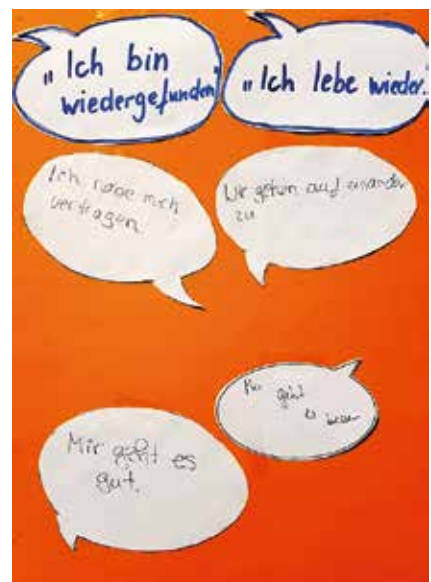 „Ich bin
wiedergefunden"
„Ich lebe wieder."
Ich habe mich
vertragen
Wir gehen auf einander
zu
Mir geht
es besser
Mir geht es
gut.